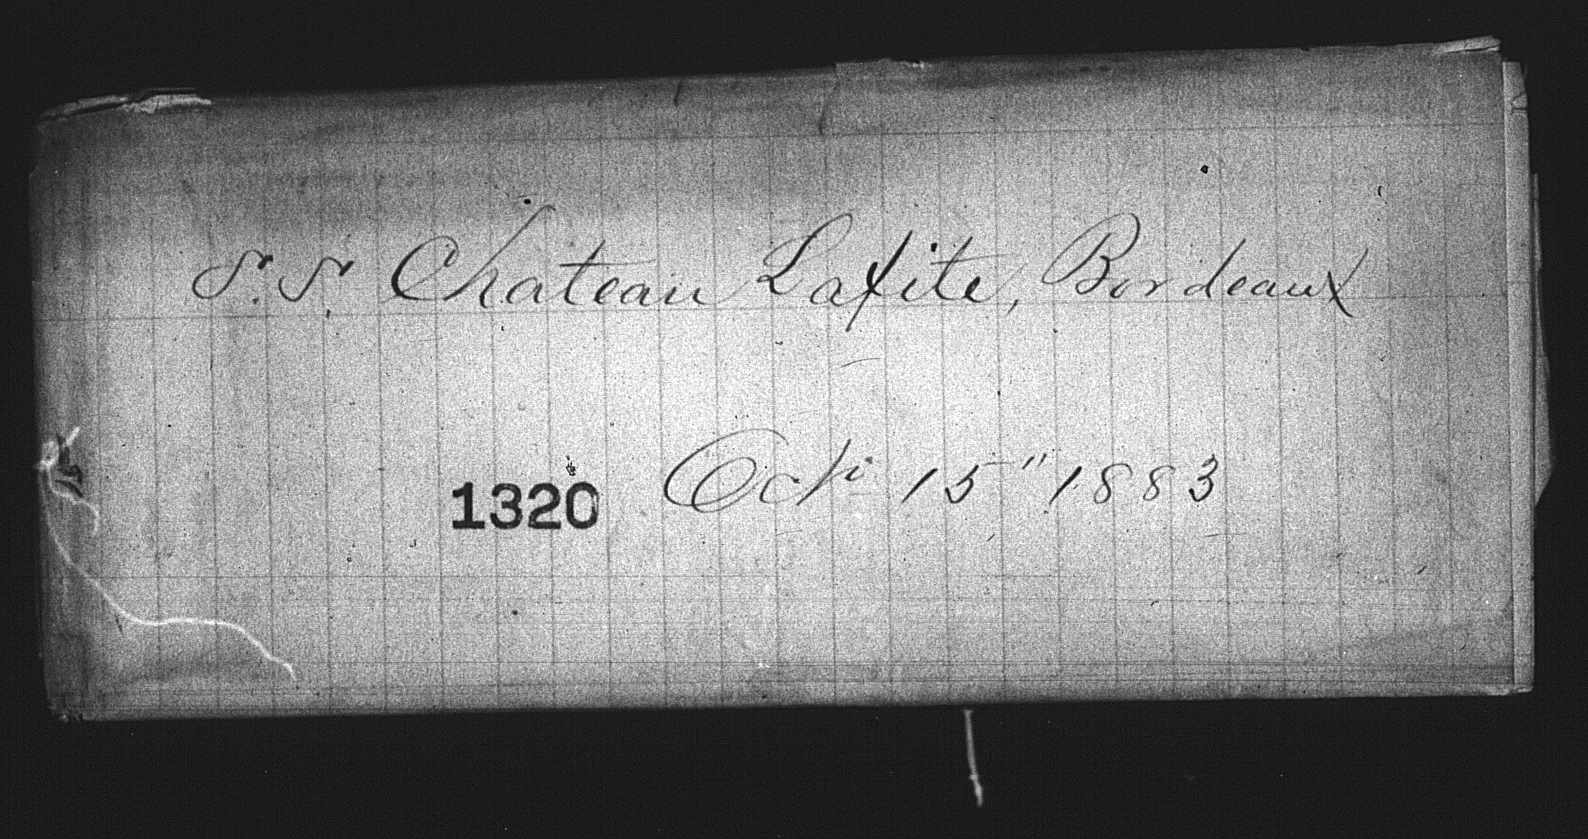 S.S. Chateau Lafite, Bordeaux
1320 Oct 15" 1883